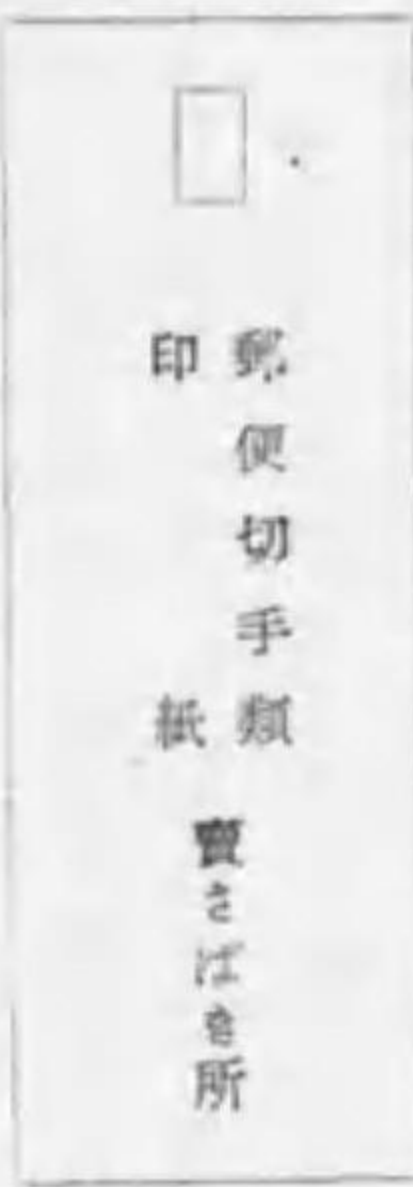 郵便切手類
印紙
賣さばき所